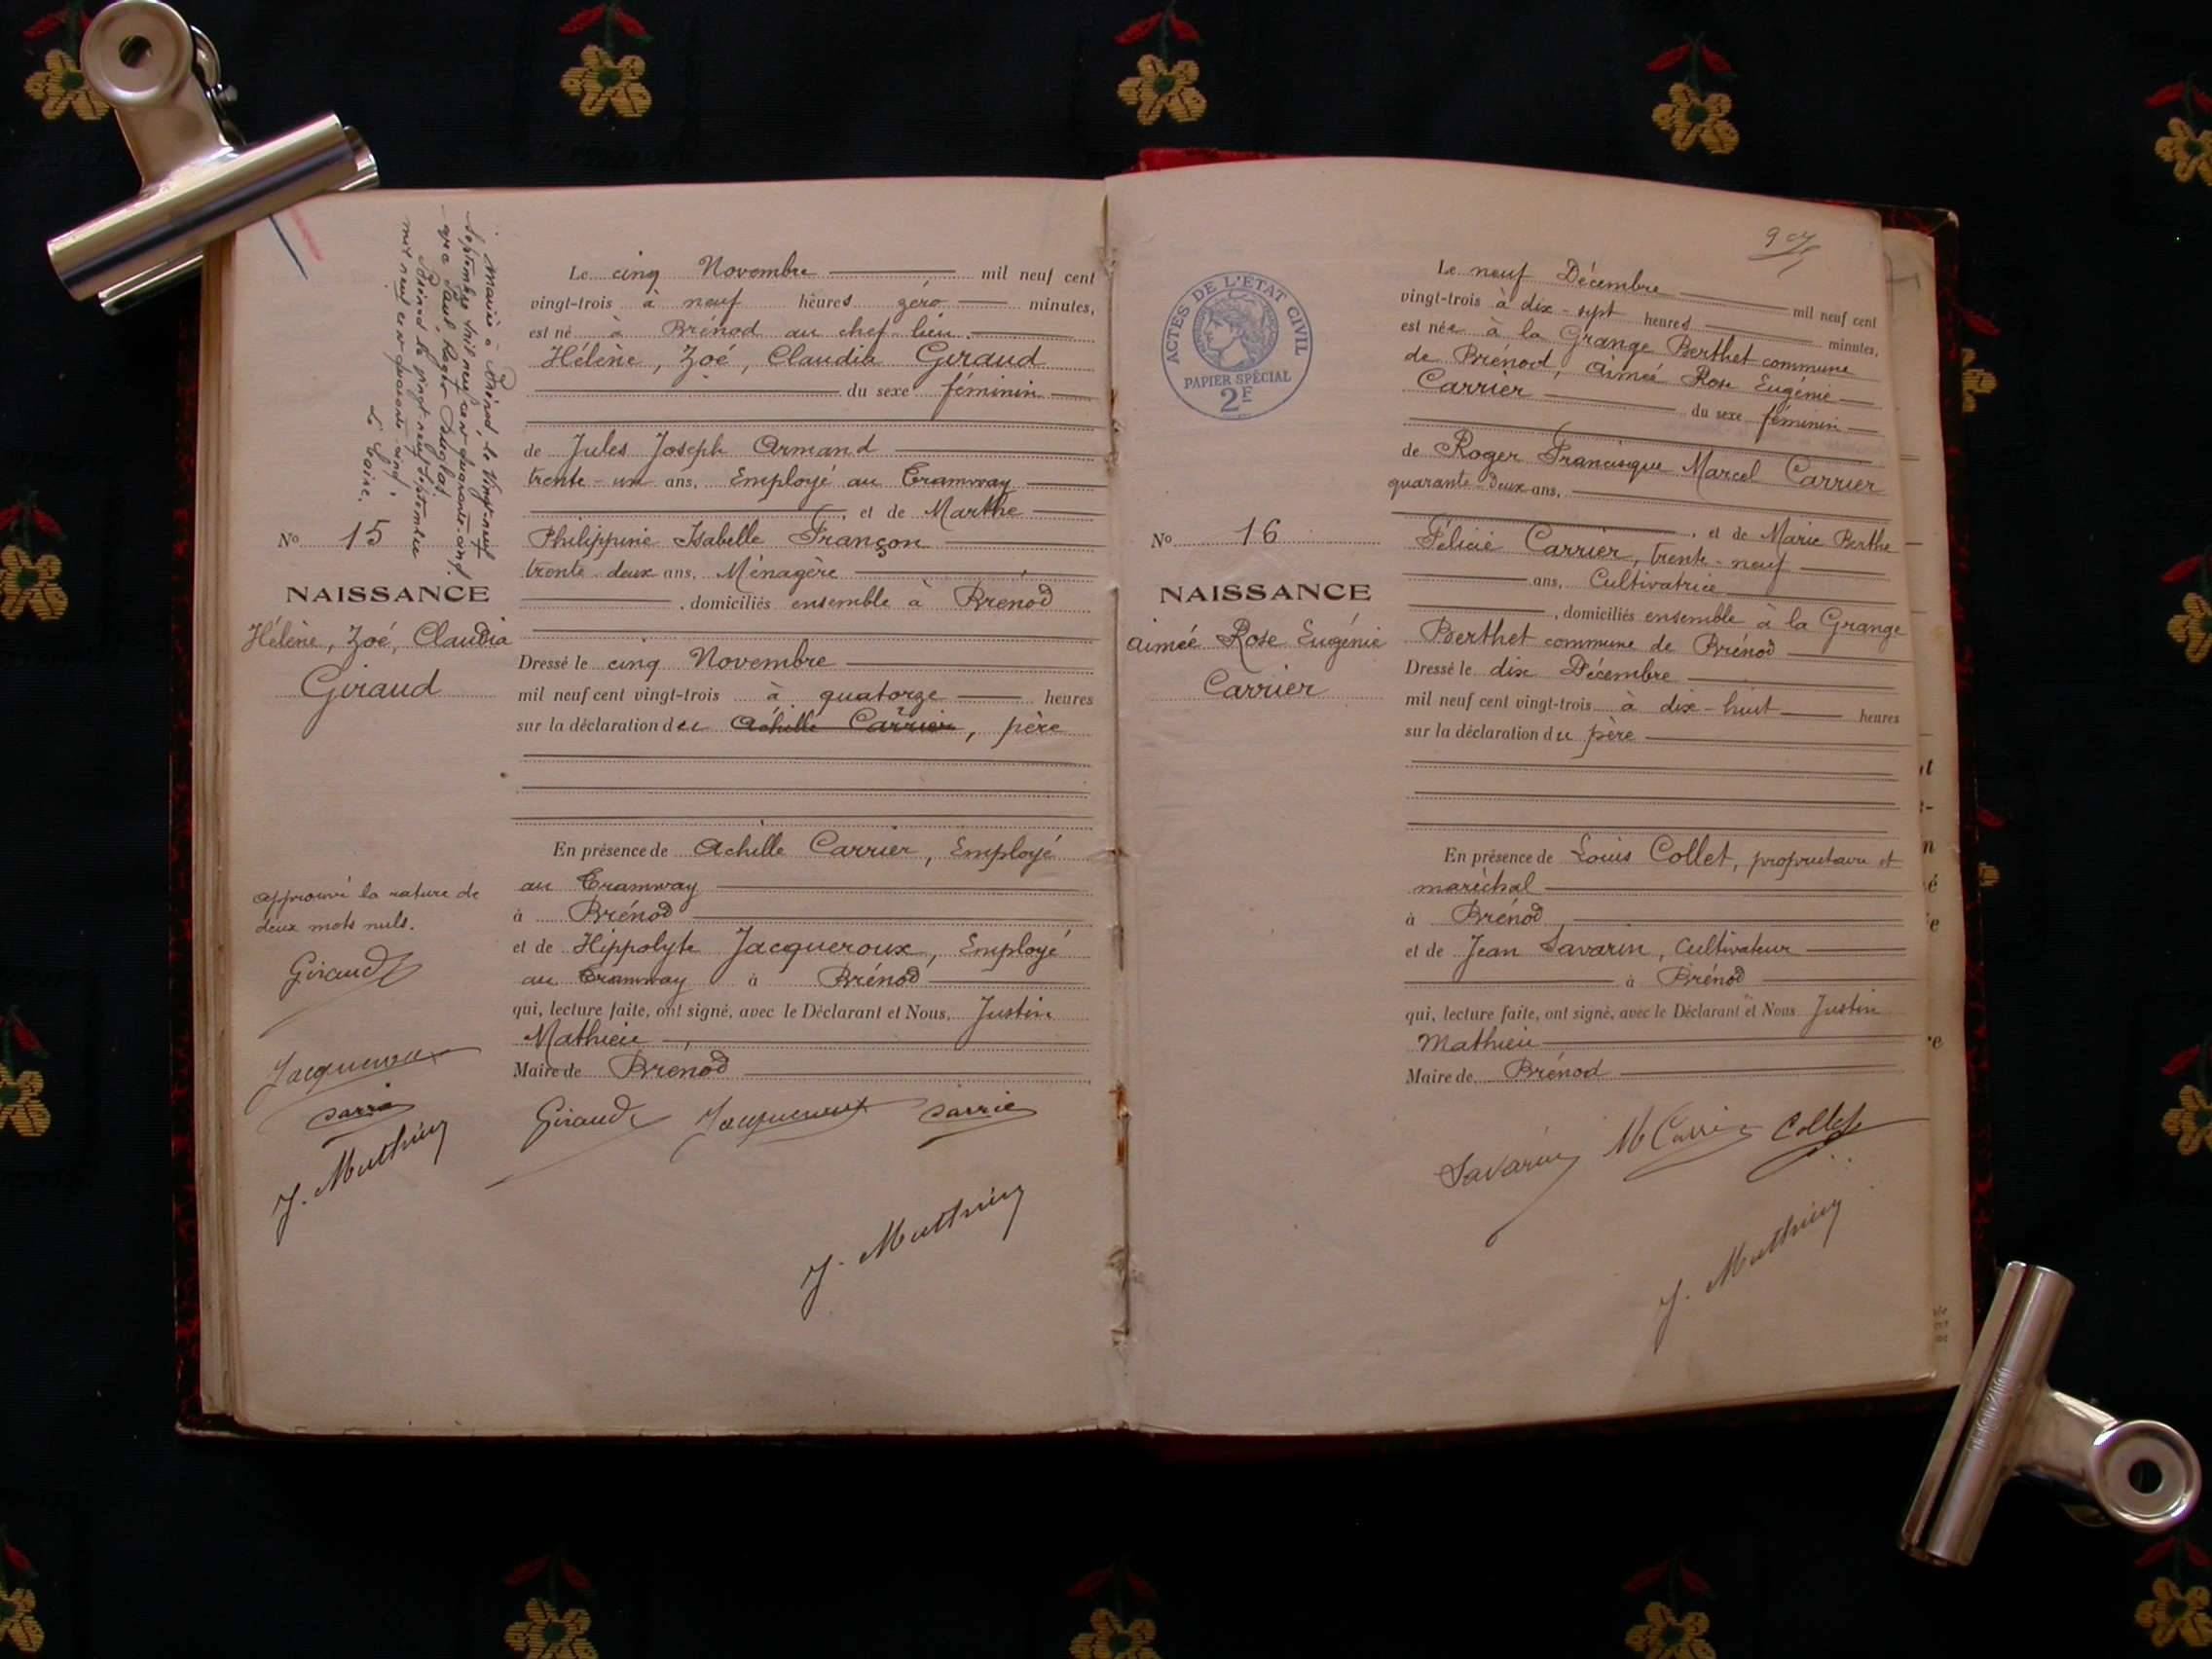 Mariée à Brénod, le vingt-neuf
septembre mil neuf cent quarante-cinq
avec Paul Roger
Brénod le vingt neuf septembre
mil neuf cent quarante-cinq.
Le Maire.
N° 15
NAISSANCE
Hélène, Zoé, Claudia
Giraud
Approuvé la rature de
deux mots nuls.
Giraud
Jacqueroux
Carrie
J. Mathieu
Le cinq Novembre mil neuf cent
vingt-trois à neuf heures zéro minutes,
est né à Brénod au chef-lieu
Hélène, Zoé, Claudia Giraud
du sexe féminin
de Jules Joseph Armand
trente-un ans, Employé au Tramway
, et de Marthe
Philippine Isabelle Françon
trente deux ans, Ménagère
, domiciliés ensemble à Brénod
Dressé le cinq Novembre
mil neuf cent vingt-trois à quatorze heures
sur la déclaration du Achille Carrier, père
En présence de Achille Carrier, Employé
au Tramway
à Brénod
et de Hippolyte Jacqueroux, Employé
au Tramway à Brénod
qui, lecture faite, ont signé, avec le Déclarant et Nous, Justin
Mathieu
Maire de Brénod
Giraud Jacqueroux Carrie
J. Mathieu
ACTES DE L'ÉTAT CIVIL
PAPIER SPÉCIAL
2F
N° 16
NAISSANCE
Aimée Rose Eugénie
Carrier
Le neuf Décembre mil neuf cent
vingt-trois à dix-sept heures minutes,
est née à la Grange Berthet commune
de Brénod, Aimée Rose Eugénie
Carrier du sexe féminin
de Roger Francisque Marcel Carrier
quarante-deux ans,
, et de Marie Berthe
Félicie Carrier, trente-neuf
ans, Cultivatrice
, domiciliés ensemble à la Grange
Berthet commune de Brénod
Dressé le dix Décembre
mil neuf cent vingt-trois à dix-huit heures
sur la déclaration du père
En présence de Louis Collet, propriétaire et
maréchal
à Brénod
et de Jean Savarin, Cultivateur
à Brénod
qui, lecture faite, ont signé, avec le Déclarant et Nous Justin
Mathieu
Maire de Brénod
Savarin M Carrier Collet
J. Mathieu